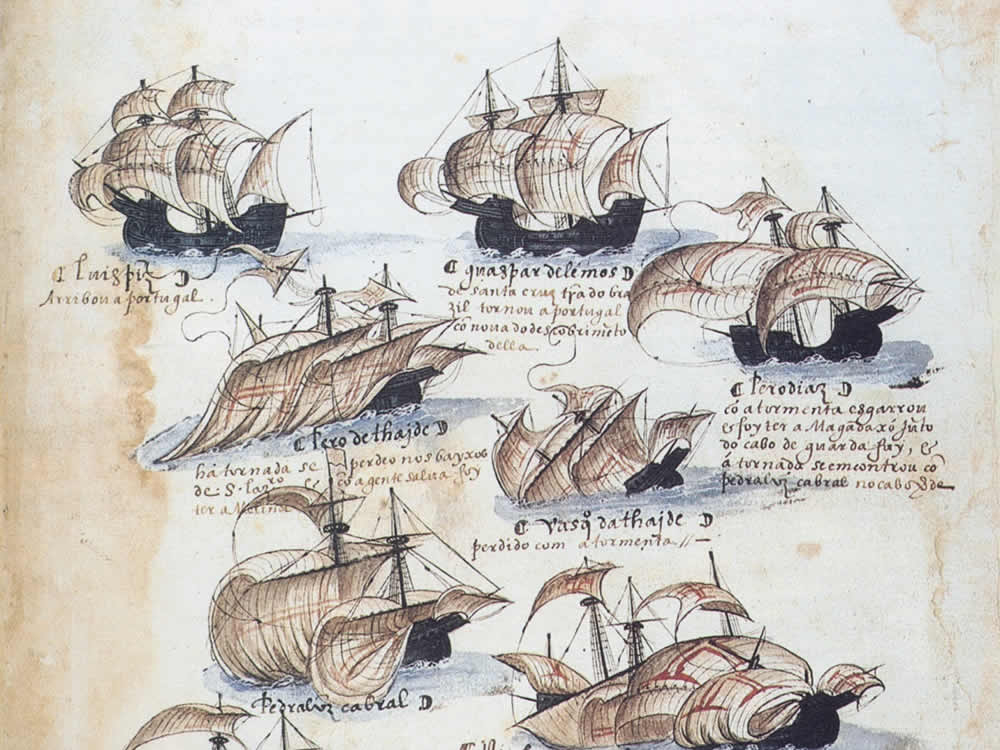 Luis piz
Arribou a portugal.
guaspar de lemos
de santa cruz trã do bra
zil tornou a portugal
cõ nova do descobrimẽto
della
Pero diaz
cõ a tormenta esgarrou
e foy ter a Magadaxó jũto
do cabo de guarda fuy, e
á tornada se emcontrou cõ
pedralvz cabral no cabo de
Pero de thaide
há tornada se perdeo nos bayxos
de S. lazro e a gente salva foy
ter a Melinde
Vasqo dathaide
perdido com a tormenta //
Pedralvz cabral